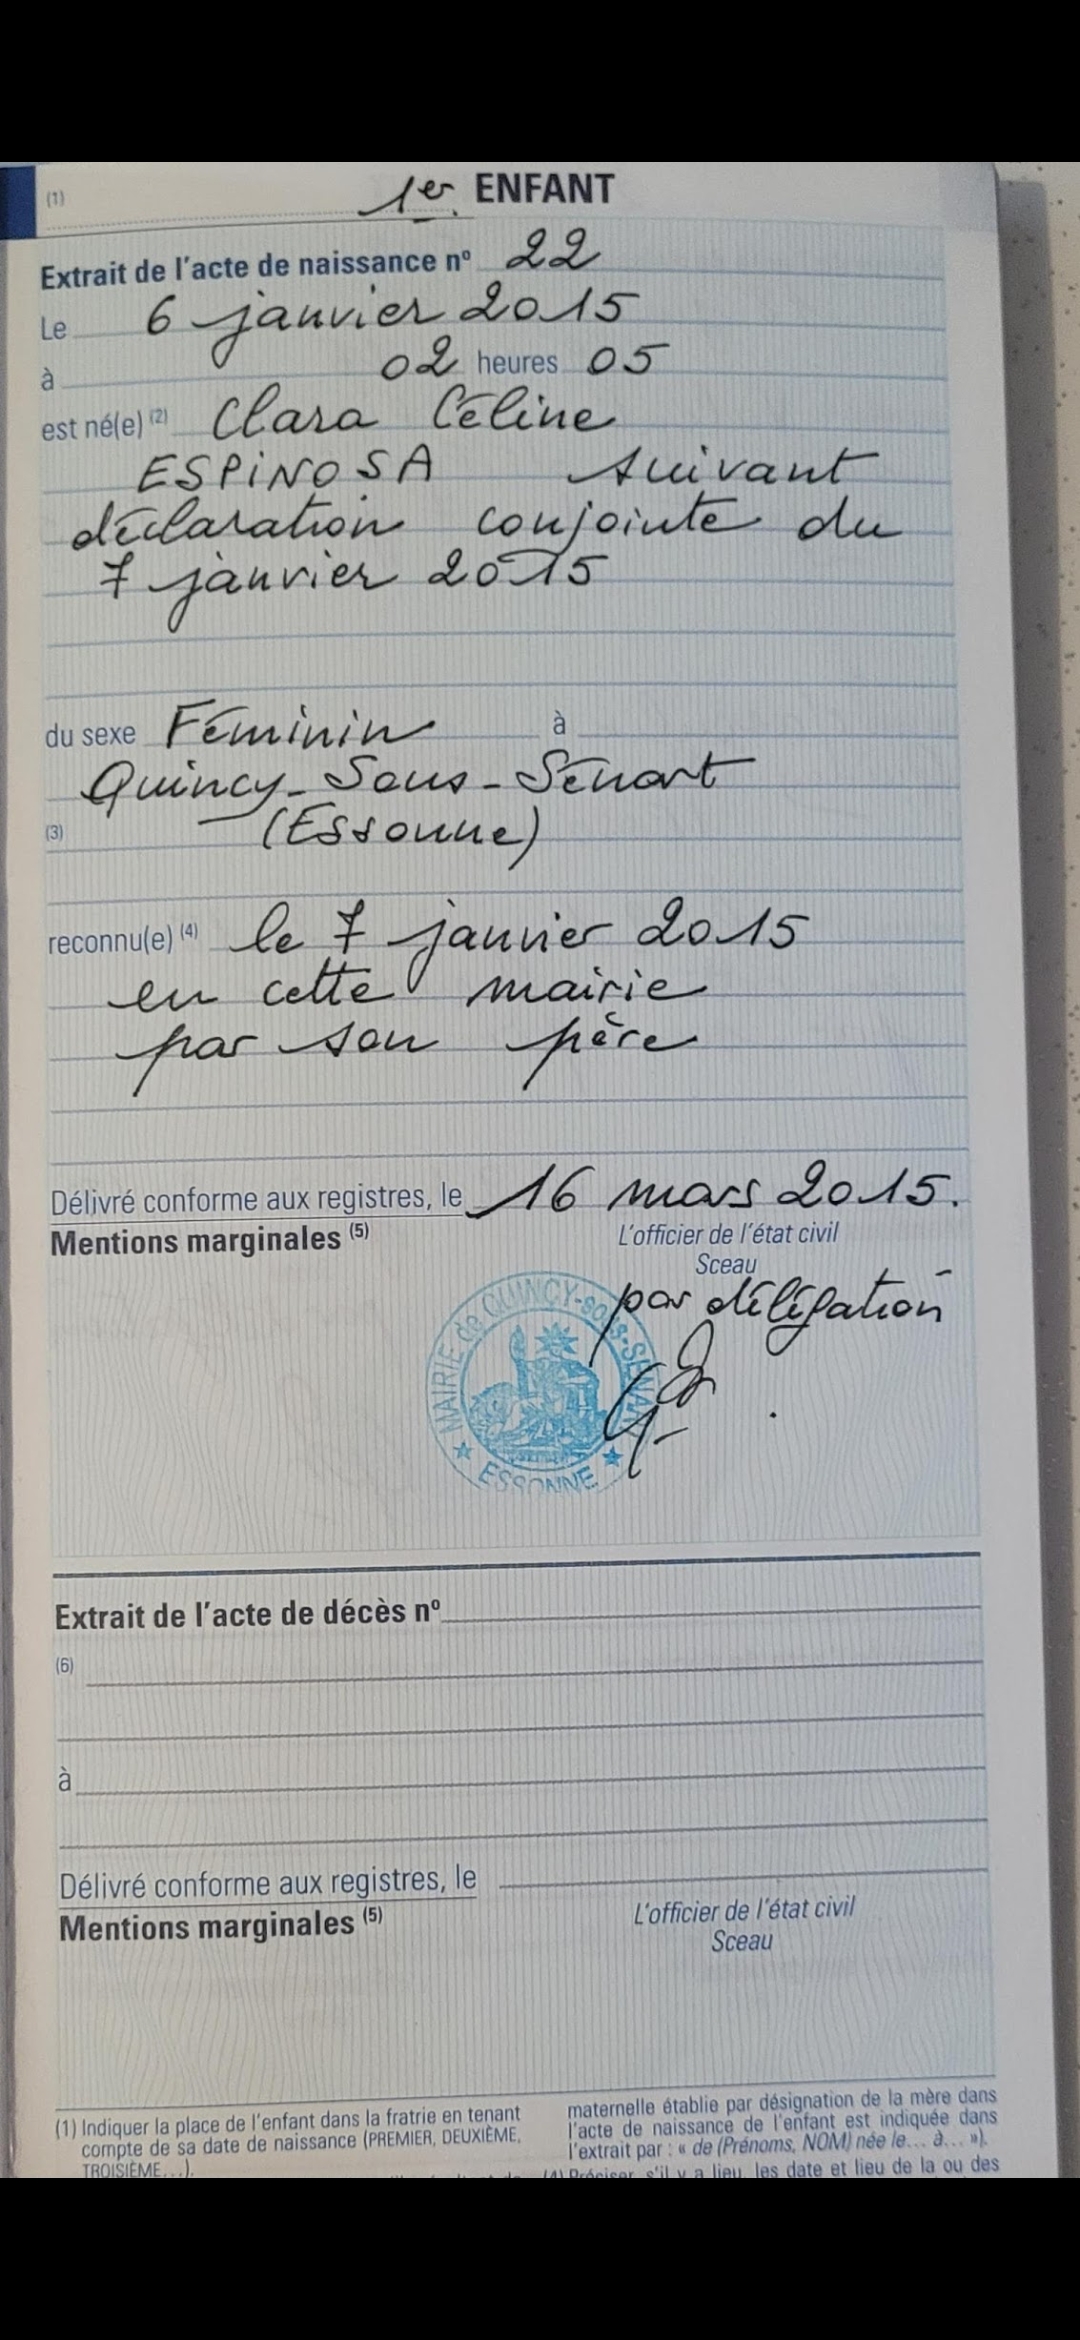 (1) 1er ENFANT
Extrait de l'acte de naissance nº 22
Le 6 janvier 2015
à 02 heures 05
est né(e) (2) Clara Céline
ESPINOSA suivant
déclaration conjointe du
7 janvier 2015
du sexe Féminin à
Quincy-Sous-Sénart
(3) (Essonne)
reconnu(e) (4) le 7 janvier 2015
en cette mairie
par son père
Délivré conforme aux registres, le 16 mars 2015.
Mentions marginales (5)
L'officier de l'état civil
Sceau
par délégation
MAIRIE de QUINCY-sous-SENART
ESSONNE
Extrait de l'acte de décès nº
(6)
à
Délivré conforme aux registres, le
Mentions marginales (5)
L'officier de l'état civil
Sceau
(1) Indiquer la place de l'enfant dans la fratrie en tenant
compte de sa date de naissance (PREMIER, DEUXIÈME,
TROISIÈME...).
maternelle établie par désignation de la mère dans
l'acte de naissance de l'enfant est indiquée dans
l'extrait par : « de (Prénoms, NOM) née le... à... »).
(4) Préciser, s'il y a lieu, les date et lieu de la ou des